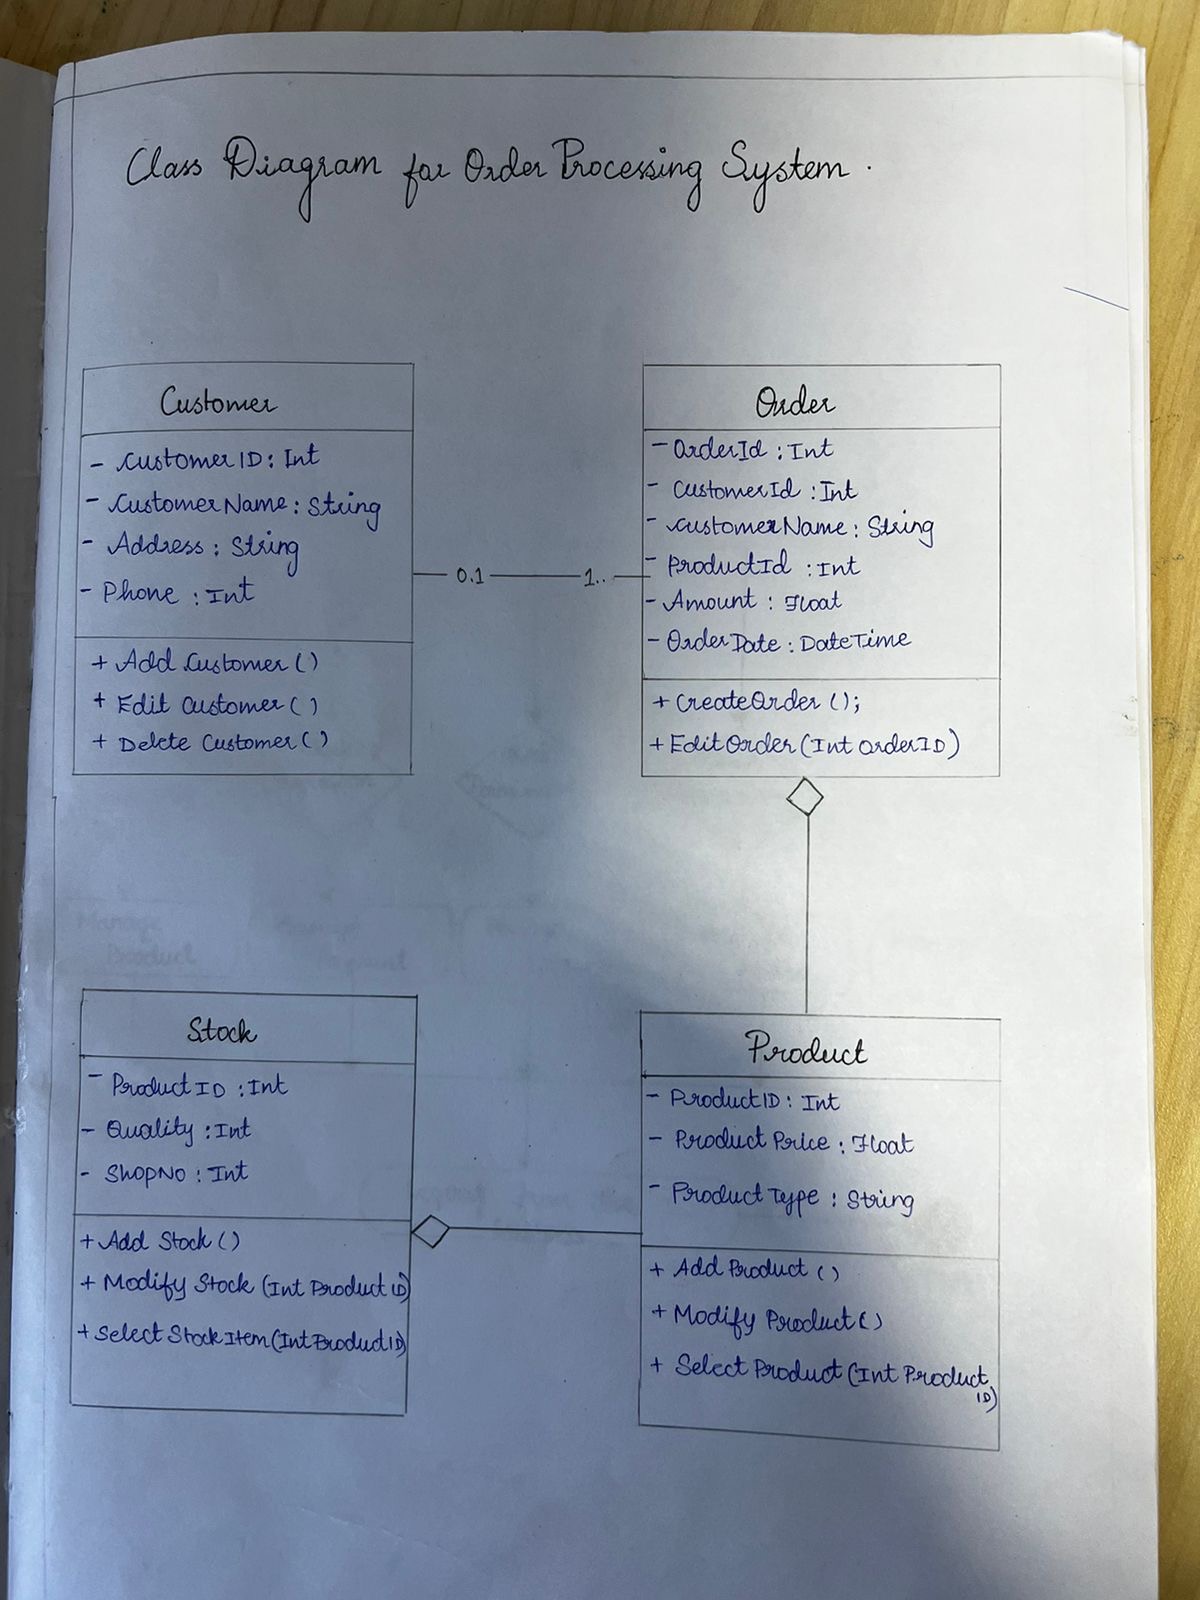 Class Diagram for Order Processing System.
Customer
- CustomerID: Int
- CustomerName: String
- Address: String
- Phone: Int
+ Add Customer()
+ Edit Customer()
+ Delete Customer()
0.1
1..
Order
- OrderId: Int
- CustomerId: Int
- CustomerName: String
- ProductId: Int
- Amount: Float
- OrderDate: DateTime
+ CreateOrder();
+ EditOrder(Int OrderID)
Stock
- ProductID: Int
- Quality: Int
- ShopNo: Int
+ Add Stock()
+ Modify Stock (Int ProductID)
+ Select StockItem(Int ProductID)
Product
- ProductID: Int
- Product Price: Float
- Product Type: String
+ Add Product()
+ Modify Product()
+ Select Product(Int Product
ID)